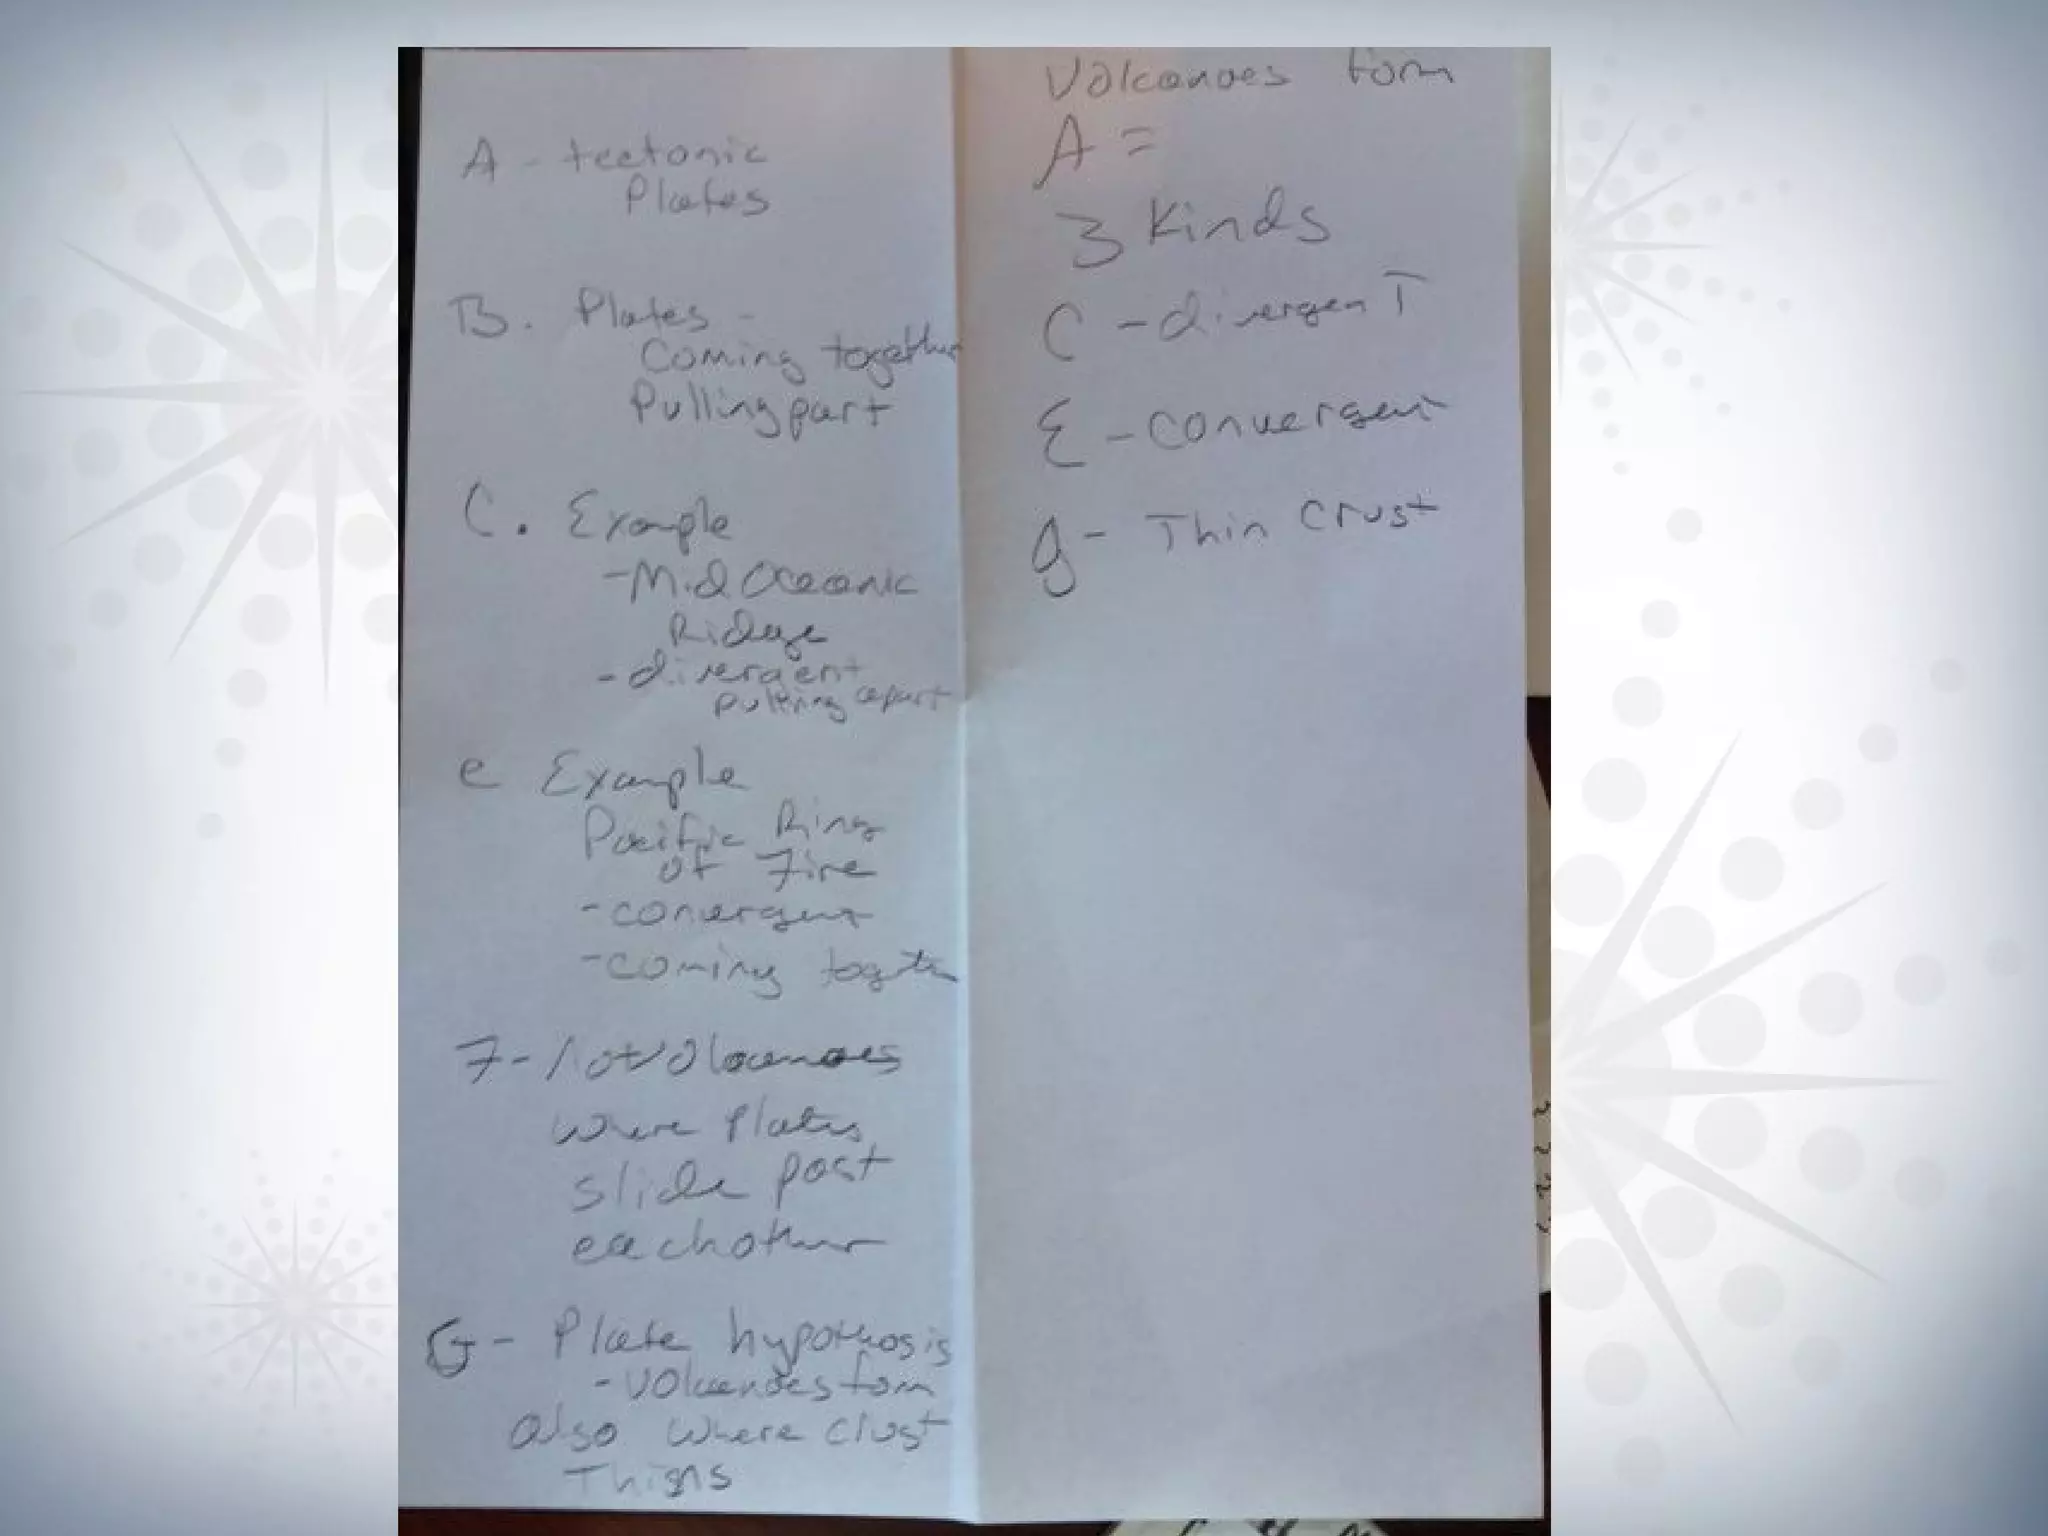 A - tectonic
Plates
B. Plates -
Coming together
Pulling part
C. Example
- Mid Oceanic
Ridege
- divergent
pulling apart
e Example
Pacific Ring
of Fire
- convergent
- coming
F - not volocanoes
where plates
slide past
eachother
G - Plate hypothosis
- volcanoes form
also where crust
Thigns
Volcanoes form
A =
3 Kinds
C - divergenT
E - convergent
g - Thin crust